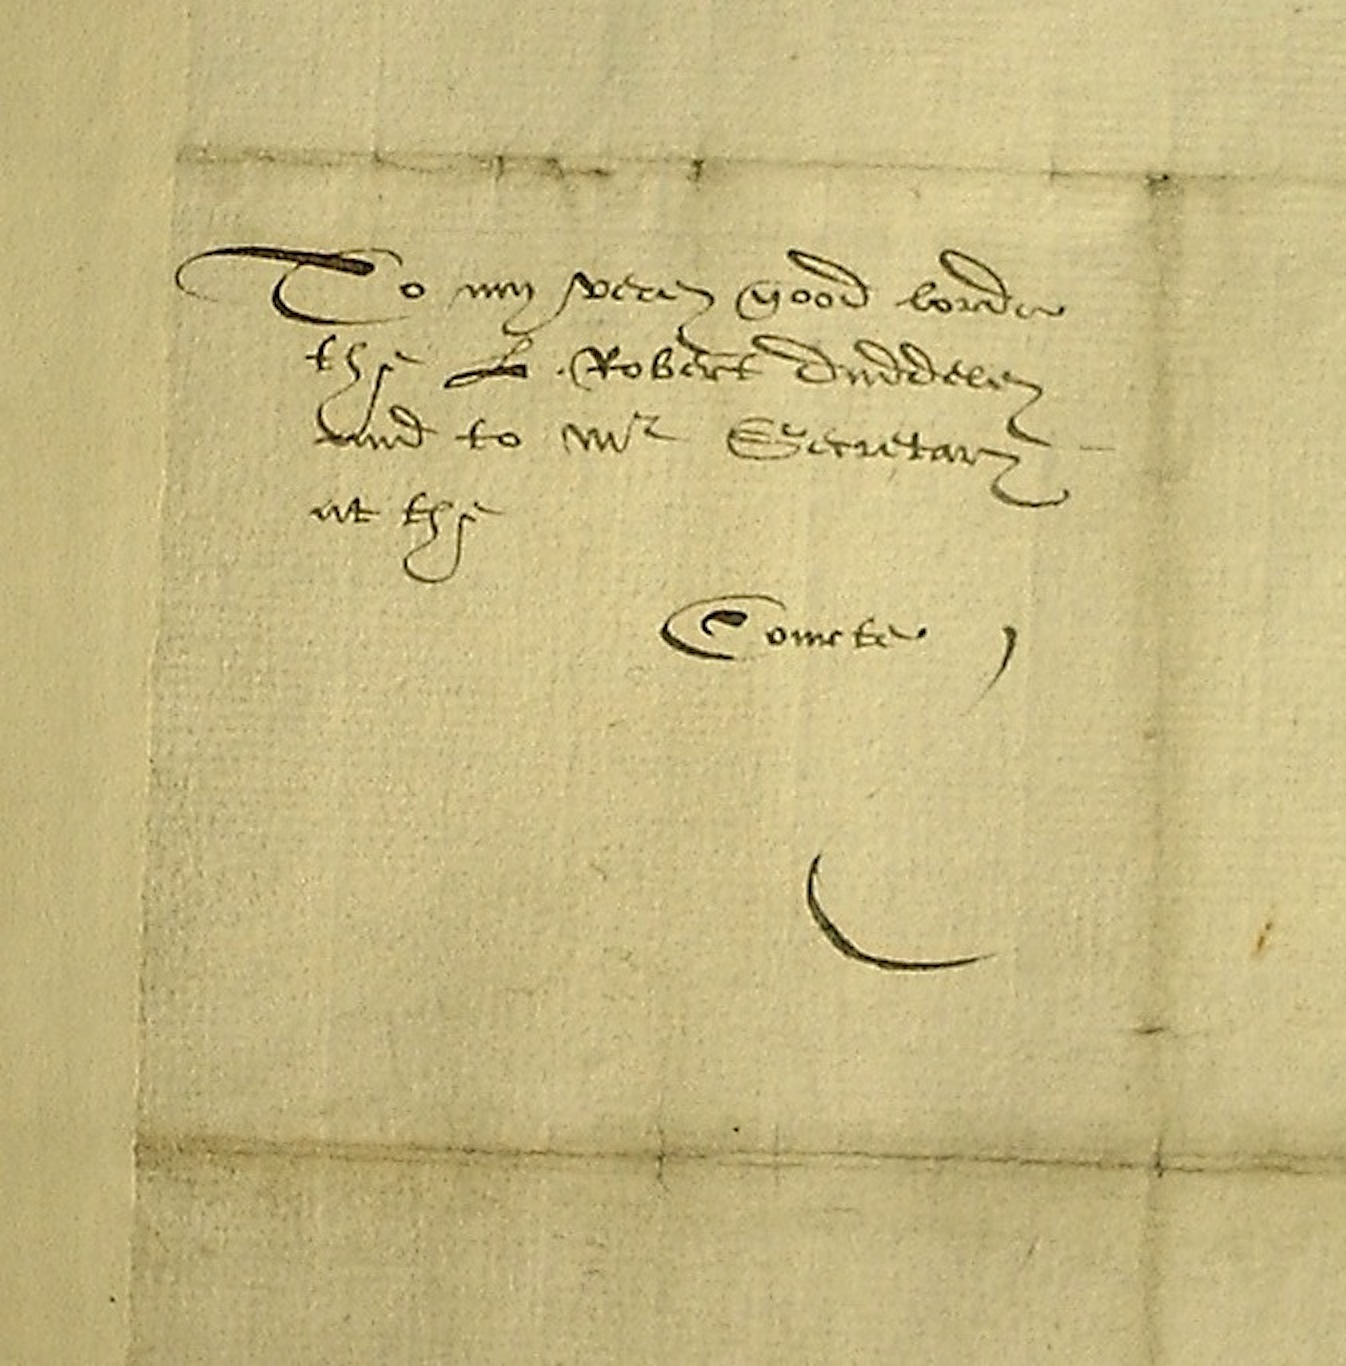 To my verey good lorde
the L. Robert Duddeley
and to Mr Secretary
at the
Courte